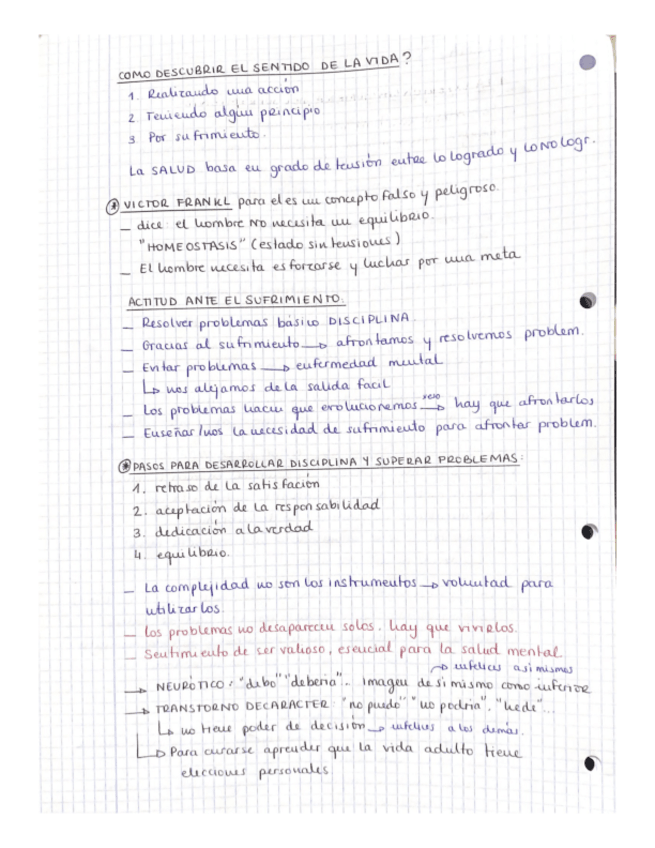 COMO DESCUBRIR EL SENTIDO DE LA VIDA?
1. Realizando una acción
2. Teniendo algún principio
3 Por sufrimiento.
La SALUD basa en grado de tensión entre lo logrado y LO NO logr.
* VICTOR FRANKL para el es un concepto falso y peligroso.
– dice: el hombre NO necesita un equilibrio.
"HOMEOSTASIS" (estado sin tensiones)
– El hombre necesita esforzarse y luchar por una meta
ACTITUD ANTE EL SUFRIMIENTO:
– Resolver problemas básico DISCIPLINA.
– Gracias al sufrimiento → afrontamos y resolvemos problem.
– Evitar problemas → enfermedad mental
↳ nos alejamos de la salida facil
– Los problemas hacen que evolucionemos → hay que afrontarlos
– Enseñar/nos la necesidad de sufrimiento para afrontar problem.
* PASOS PARA DESARROLLAR DISCIPLINA Y SUPERAR PROBLEMAS:
1. retraso de la satisfación
2. aceptación de la responsabilidad
3. dedicación a la verdad
4. equilibrio.
– La complejidad no son los instrumentos → voluntad para
utilizarlos.
– los problemas no desaparecen solos. hay que vivirlos.
– Sentimiento de ser valioso, esencial para la salud mental
→ infelices a si mismos
→ NEURÓTICO: "debo" "deberia". Imagen de si mismo como inferior
→ TRANSTORNO DE CARACTER: "no puedo" "no podria".
↳ no tiene poder de decisión → infelices a los demás.
↳ Para curarse aprender que la vida adulto tiene
elecciones personales